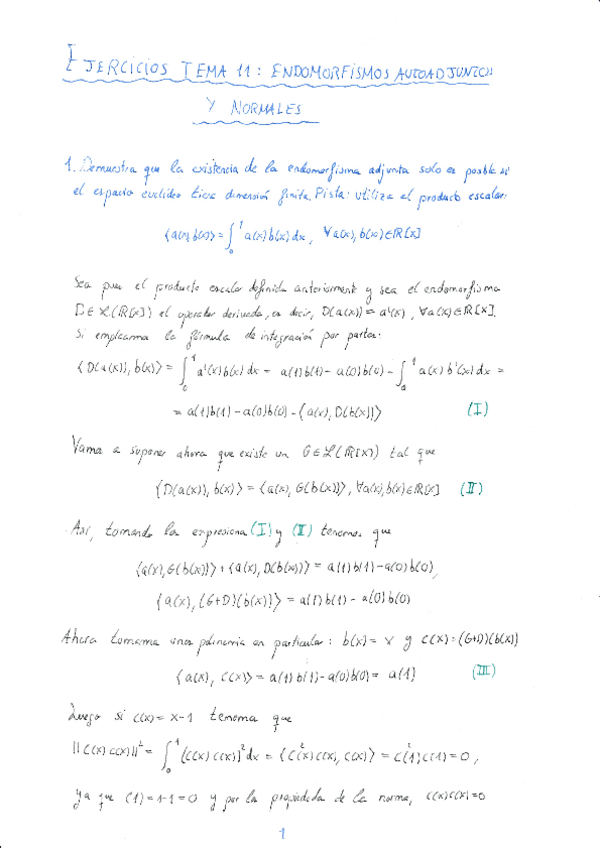 EJERCICIOS TEMA 11: ENDOMORFISMOS AUTOADJUNTOS
Y NORMALES
1. Demuestra que la existencia de los endomorfismos adjuntos solo es posible si
el espacio euclídeo tiene dimensión finita. Pista: utiliza el producto escalar:
⟨a(x), b(x)⟩ = ∫₀¹ a(x)b(x)dx, ∀a(x), b(x) ∈ ℝ[x]
Sea pues el producto escalar definido anteriormente y sea el endomorfismo
D ∈ ℒ(ℝ[x]) el operador derivada, es decir, D(a(x)) = a'(x), ∀a(x) ∈ ℝ[x].
Si empleamos la fórmula de integración por partes:
⟨D(a(x)), b(x)⟩ = ∫₀¹ a'(x)b(x)dx = a(1)b(1) - a(0)b(0) - ∫₀¹ a(x)b'(x)dx =
= a(1)b(1) - a(0)b(0) - ⟨a(x), D(b(x))⟩ (I)
Vamos a suponer ahora que existe un G ∈ ℒ(ℝ[x]) tal que
⟨D(a(x)), b(x)⟩ = ⟨a(x), G(b(x))⟩, ∀a(x), b(x) ∈ ℝ[x] (II)
Así, tomando las expresiones (I) y (II) tenemos que
⟨a(x), G(b(x))⟩ + ⟨a(x), D(b(x))⟩ = a(1)b(1) - a(0)b(0),
⟨a(x), (G+D)(b(x))⟩ = a(1)b(1) - a(0)b(0)
Ahora tomamos unos polinomios en particular: b(x) = x y c(x) = (G+D)(b(x))
⟨a(x), c(x)⟩ = a(1)b(1) - a(0)b(0) = a(1) (III)
Luego si c(x) = x-1 tenemos que
||c(x)c(x)||² = ∫₀¹ (c(x)c(x))² dx = ⟨c²(x)c(x), c(x)⟩ = c²(1)c(1) = 0,
ya que c(1) = 1-1 = 0 y por las propiedades de la norma, c(x)c(x) = 0
1